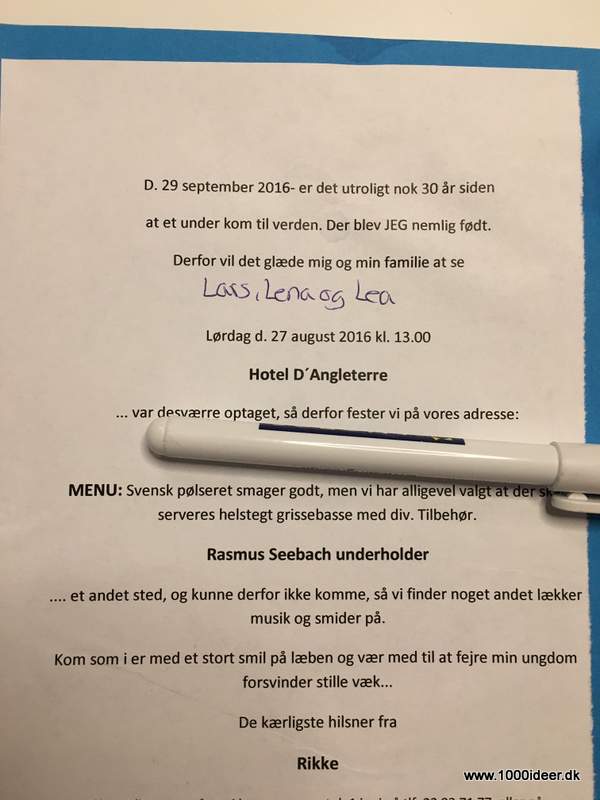 D. 29 september 2016- er det utroligt nok 30 år siden
at et under kom til verden. Der blev JEG nemlig født.
Derfor vil det glæde mig og min familie at se
Lars, Lena og Lea
Lørdag d. 27 august 2016 kl. 13.00
Hotel D´Angleterre
... var desværre optaget, så derfor fester vi på vores adresse:
MENU: Svensk pølseret smager godt, men vi har alligevel valgt at der
serveres helstegt grissebasse med div. Tilbehør.
Rasmus Seebach underholder
.... et andet sted, og kunne derfor ikke komme, så vi finder noget andet lækker
musik og smider på.
Kom som i er med et stort smil på læben og vær med til at fejre min ungdom
forsvinder stille væk...
De kærligste hilsner fra
Rikke
www.1000ideer.dk